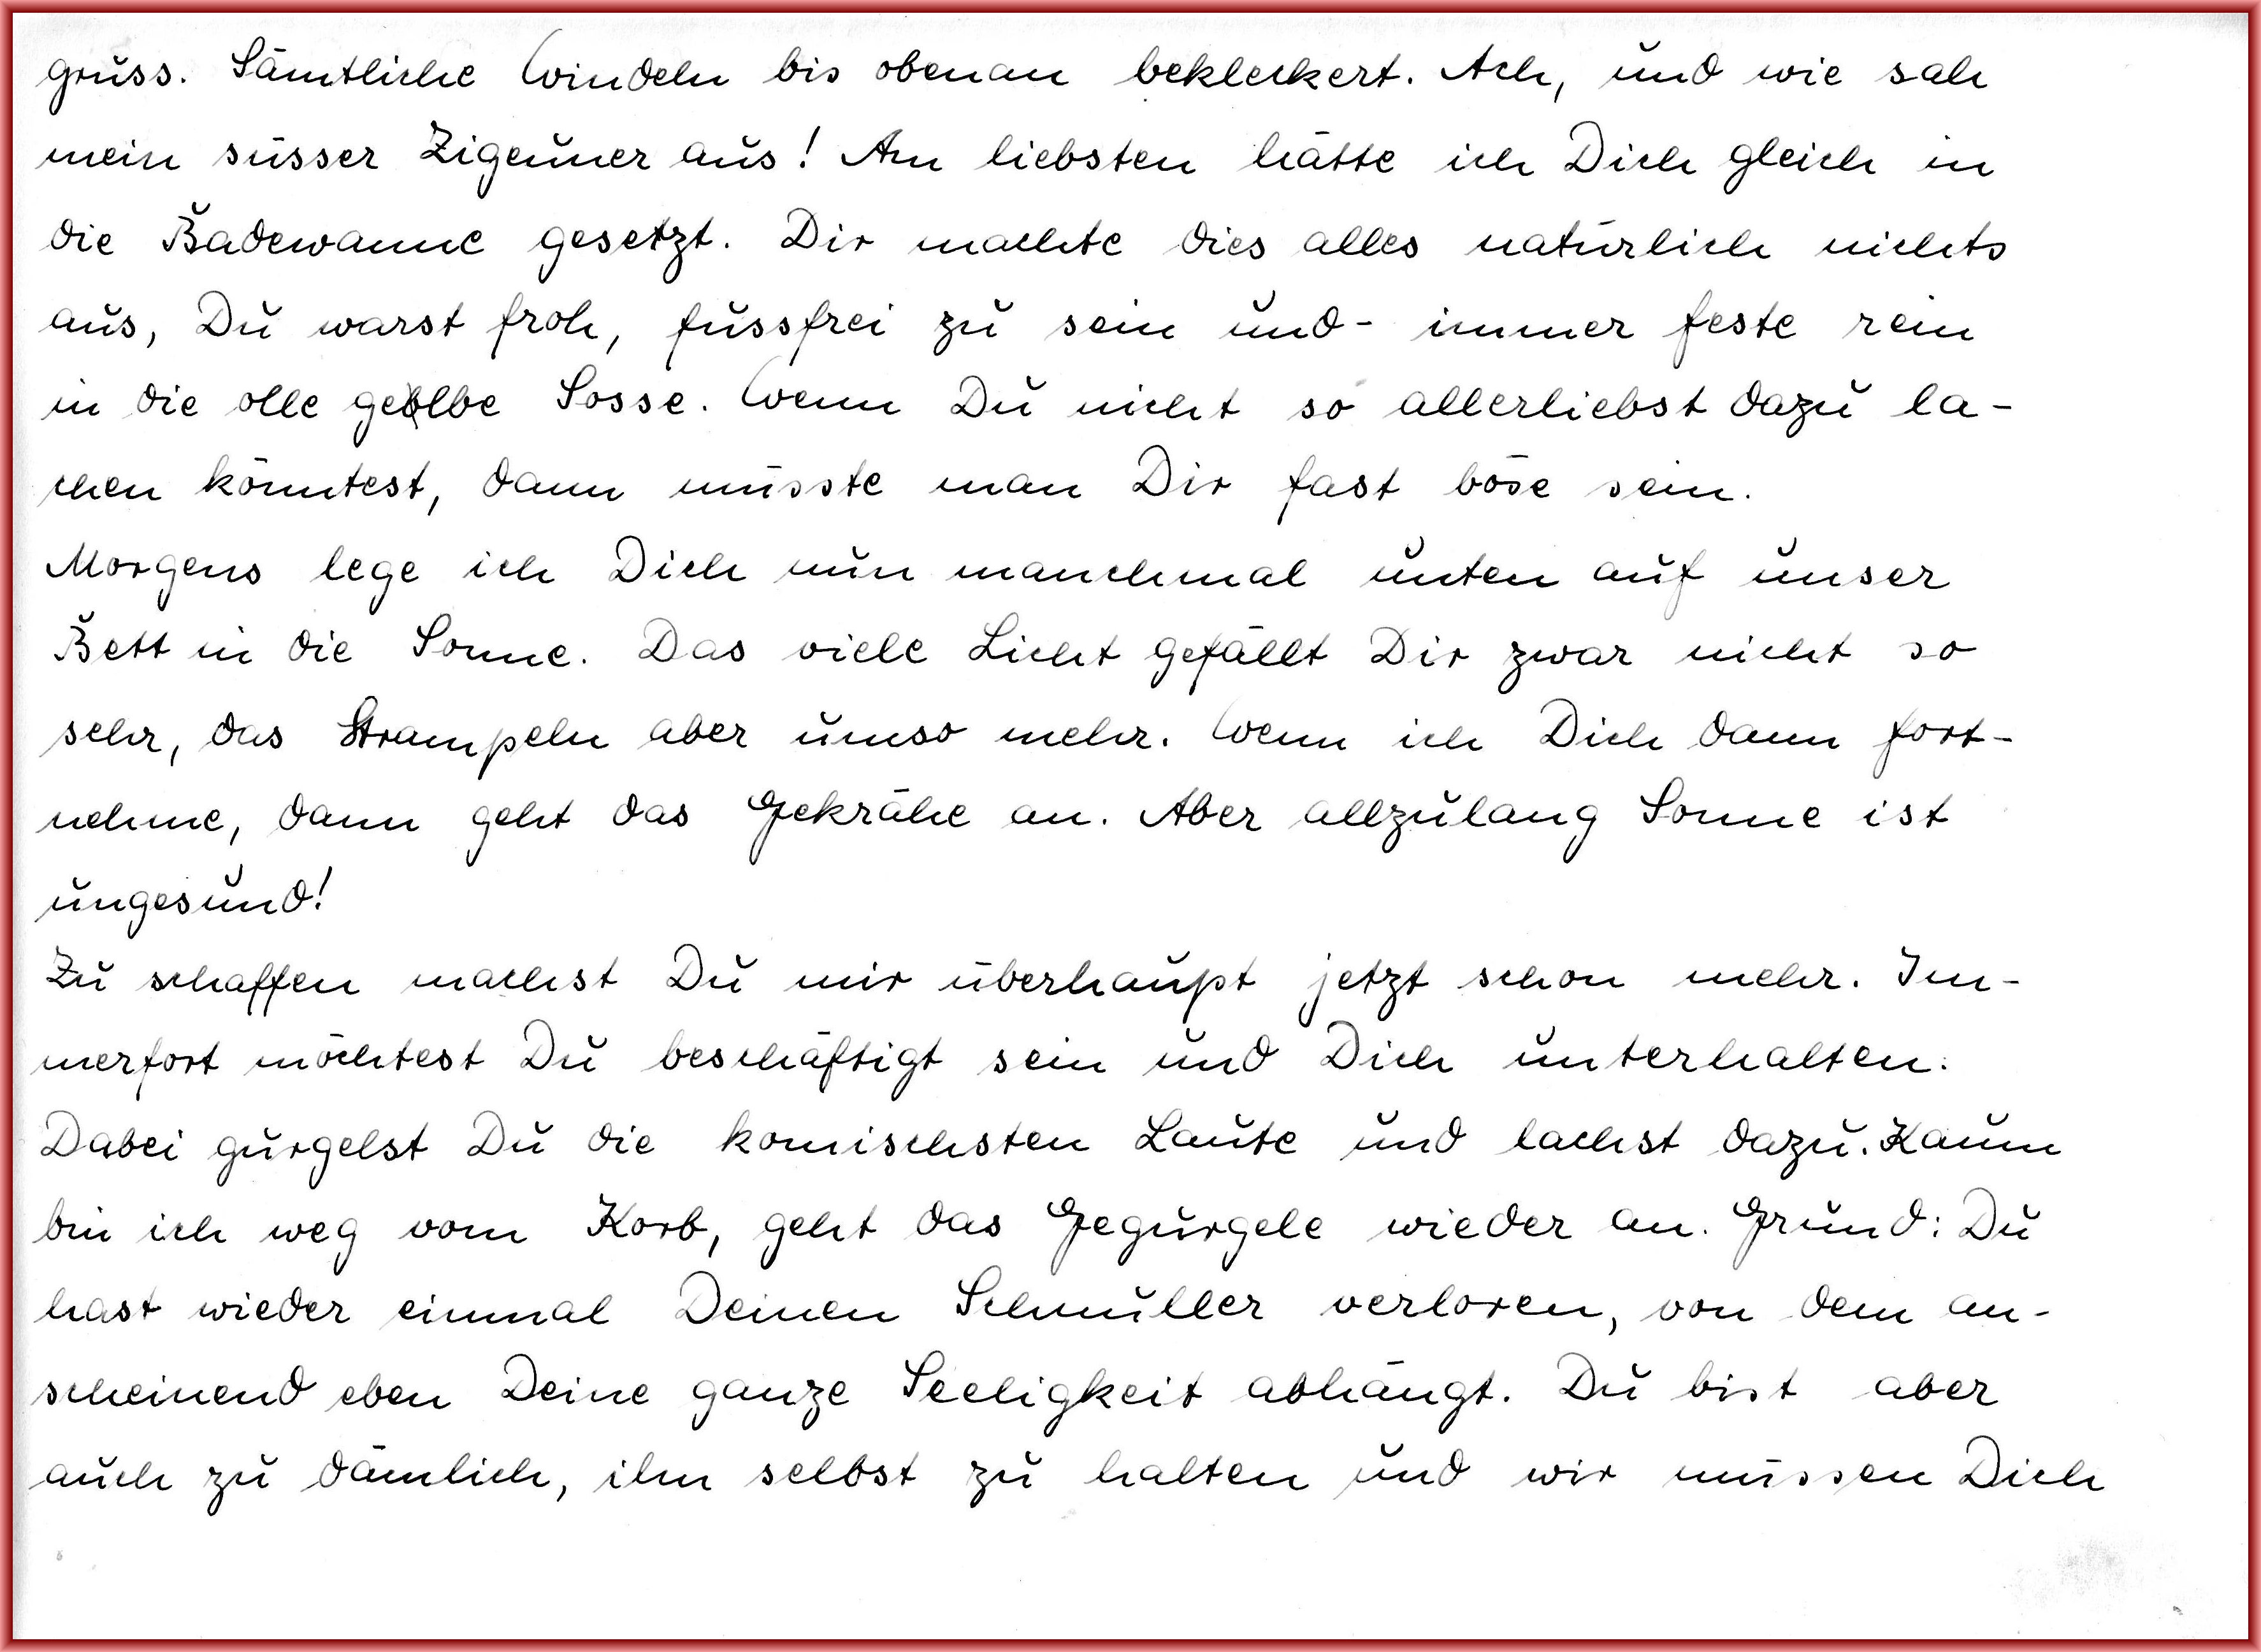 gruss. Sämtliche Windeln bis obenan bekleckert. Ach, und wie sah
mein süsser Zigeuner aus! Am liebsten hätte ich Dich gleich in
die Badewanne gesetzt. Dir machte dies alles natürlich nichts
aus, Du warst froh, fussfrei zu sein und - immer feste rein
in die olle gelbe Sosse. Wenn Du nicht so allerliebst dazu la-
chen könntest, dann müsste man Dir fast böse sein.
Morgens lege ich Dich nun manchmal unten auf unser
Bett in die Sonne. Das viele Licht gefällt Dir zwar nicht so
sehr, das Strampeln aber umso mehr. Wenn ich Dich dann fort-
nehme, dann geht das Gekrähe an. Aber allzulang Sonne ist
ungesund!
Zu schaffen machst Du mir überhaupt jetzt schon mehr. Im-
merfort möchtest Du beschäftigt sein und Dich unterhalten.
Dabei gurgelst Du die komischsten Laute und lachst dazu. Kaum
bin ich weg vom Korb, geht das Gegurgele wieder an. Grund: Du
hast wieder einmal Deinen Schnuller verloren, von dem an-
scheinend eben Deine ganze Seeligkeit abhängt. Du bist aber
auch zu dämlich, ihn selbst zu halten und wir müssen Dich